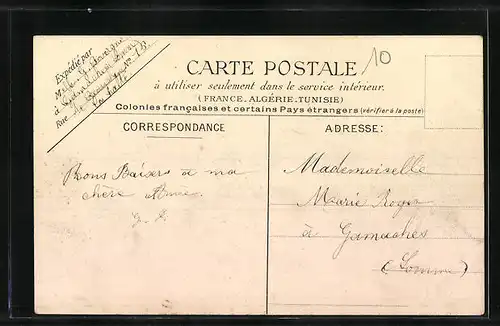 Expédié par
M
à
Rue
10
CARTE POSTALE
à utiliser seulement dans le service intérieur.
(FRANCE_ALGÉRIE_TUNISIE)
Colonies françaises et certains Pays étrangers (vérifier à la poste)
CORRESPONDANCE
Bons Baisers à ma
chère
ADRESSE:
Mademoiselle
Marie Roger
à Gamaches
(Somme)